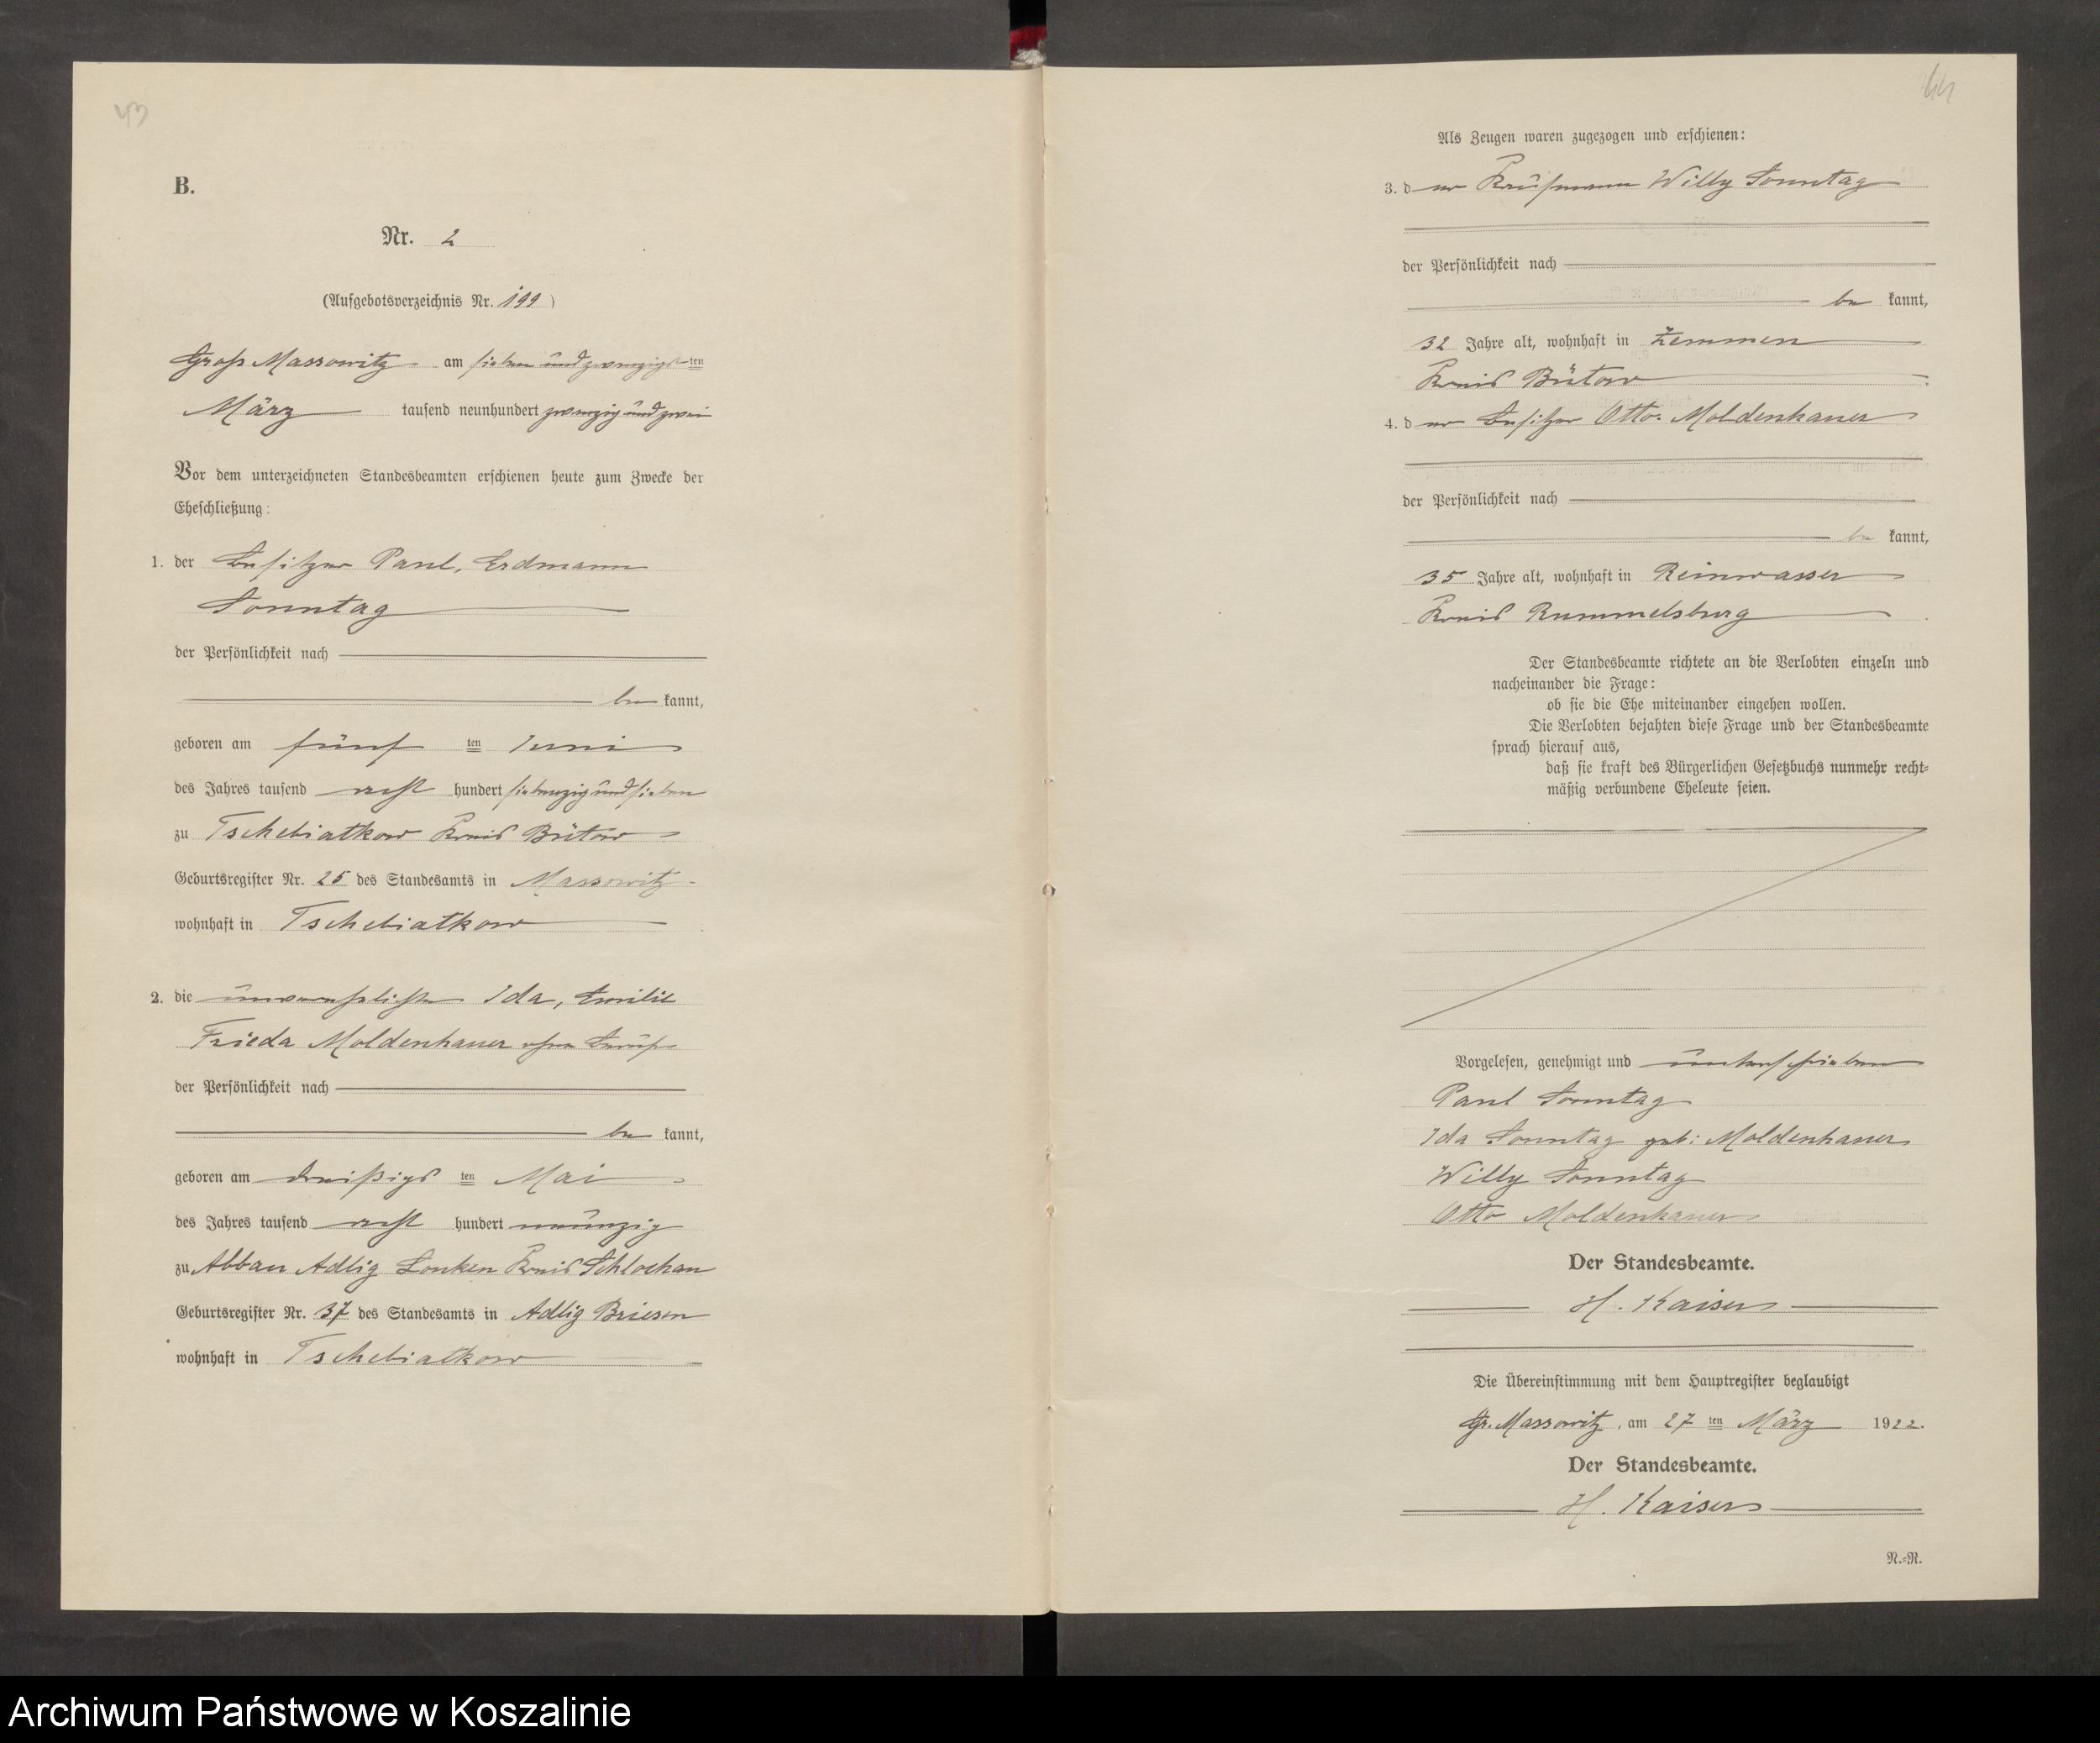 43
B.
Nr. 2
(Aufgebotsverzeichnis Nr. 199)
Groß Massowitz am sieben und zwanzigsten
März tausend neunhundert zwanzig und zwei
Vor dem unterzeichneten Standesbeamten erschienen heute zum Zwecke der
Eheschließung:
1. der Besitzer Paul, Erdmann
Sonntag
der Persönlichkeit nach
be kannt,
geboren am fünf ten Juni
des Jahres tausend acht hundert siebenzig und sieben
zu Tschebiatkow Kreis Bütow
Geburtsregister Nr. 25 des Standesamts in Massowitz
wohnhaft in Tschebiatkow
2. die unverehelichte Ida, Emilie
Frieda Moldenhauer ohne Beruf
der Persönlichkeit nach
be kannt,
geboren am dreißigs ten Mai
des Jahres tausend acht hundert neunzig
zu Abbau Adlig Lonken Kreis Schlochau
Geburtsregister Nr. 37 des Standesamts in Adlig Briesen
wohnhaft in Tschebiatkow
44
Als Zeugen waren zugezogen und erschienen:
3. d er Kaufmann Willy Sonntag
der Persönlichkeit nach
be kannt,
32 Jahre alt, wohnhaft in Zemmen
Kreis Bütow
4. d er Besitzer Otto Moldenhauer
der Persönlichkeit nach
be kannt,
35 Jahre alt, wohnhaft in Reinwasser
Kreis Rummelsburg
Der Standesbeamte richtete an die Verlobten einzeln und
nacheinander die Frage:
ob sie die Ehe miteinander eingehen wollen.
Die Verlobten bejahten diese Frage und der Standesbeamte
sprach hierauf aus,
daß sie kraft des Bürgerlichen Gesetzbuchs nunmehr recht-
mäßig verbundene Eheleute seien.
Vorgelesen, genehmigt und unterschrieben
Paul Sonntag
Ida Sonntag geb: Moldenhauer
Willy Sonntag
Otto Moldenhauer
Der Standesbeamte.
H. Kaiser
Die Übereinstimmung mit dem Hauptregister beglaubigt
Gr. Massowitz, am 27 ten März 1922.
Der Standesbeamte.
H. Kaiser
N.-R.
Archiwum Państwowe w Koszalinie